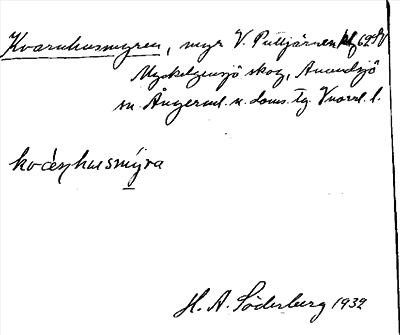 Kvarnhusmyren, myr V. Puttjärnen 62 IV
Myckelgensjö skog, Anundsjö
sn. Ångerml. n. doms. tg. Vnorrl. l.
kvarnhusmýra
H. A. Söderberg 1932